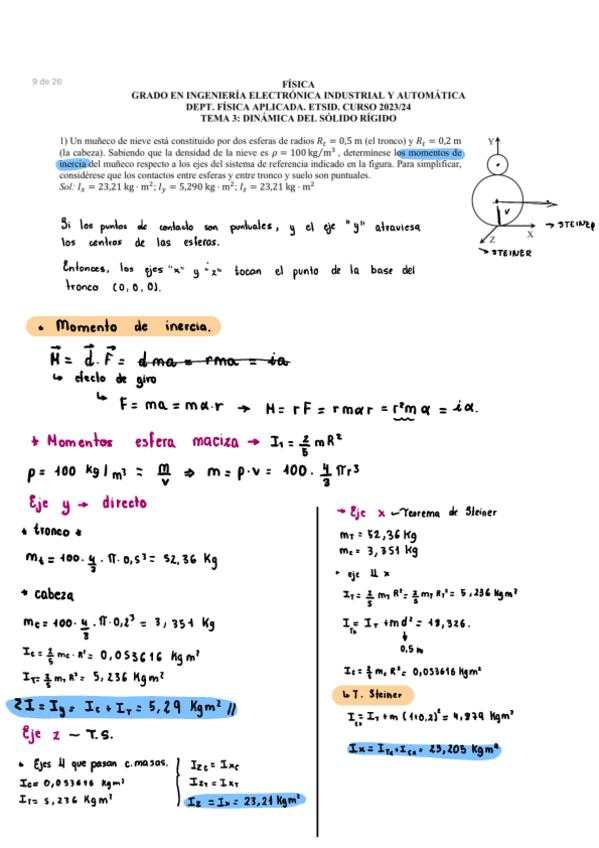 9 de 26
FÍSICA
GRADO EN INGENIERÍA ELECTRÓNICA INDUSTRIAL Y AUTOMÁTICA
DEPT. FÍSICA APLICADA. ETSID. CURSO 2023/24
TEMA 3: DINÁMICA DEL SÓLIDO RÍGIDO
1) Un muñeco de nieve está constituido por dos esferas de radios R_t = 0,5 m (el tronco) y R_t = 0,2 m
(la cabeza). Sabiendo que la densidad de la nieve es ρ = 100 kg/m³ , determínese los momentos de
inercia del muñeco respecto a los ejes del sistema de referencia indicado en la figura. Para simplificar,
considérese que los contactos entre esferas y entre tronco y suelo son puntuales.
Sol: I_x = 23,21 kg · m²; I_y = 5,290 kg · m²; I_z = 23,21 kg · m²
Y
r
→ STEINER
X
Z
→ STEINER
Si los puntos de contacto son puntuales, y el eje "y" atraviesa
los centros de las esferas.
Entonces, los ejes "x" y "z" tocan el punto de la base del
tronco (0,0,0).
• Momento de inercia.
M = d · F = dma = rma = iα
↳ efecto de giro
↳ F = ma = mα·r → M = rF = rmαr = r²mα = iα.
* Momentos esfera maciza → I₁ = 2/5 mR²
ρ = 100 kg/m³ = m/v ⇒ m = ρ·v = 100 · 4/3 πr³
Eje y → directo
* tronco *
m_t = 100 · 4/3 · π · 0,5³ = 52,36 Kg
* cabeza
m_c = 100 · 4/3 · π · 0,2³ = 3,351 Kg
I_c = 2/5 m_c · R² = 0,053616 Kg m²
I_T = 2/5 m_t R² = 5,236 Kg m²
ΣI = I_y = I_c + I_T = 5,29 Kgm² //
Eje z ~ T.S.
• Ejes // que pasan c.masas.
I_c = 0,053616 Kgm²
I_T = 5,236 Kgm²
I_zc = I_xc
I_zT = I_xT
I_z = I_x = 23,21 Kgm²
→ Eje x ~ Teorema de Steiner
m_T = 52,36 Kg
m_c = 3,351 Kg
• eje // x
I_T = 2/5 m_T R² = 2/5 m_T R_T² = 5,236 Kgm²
I_Tx = I_T + md² = 18,326.
↓
0,5 m
I_c = 2/5 m_c R² = 0,053616 Kgm²
↳ T. Steiner
I_cx = I_T + m (1+0,2)² = 4,879 Kgm²
I_x = I_Tx + I_cx = 23,205 Kgm²